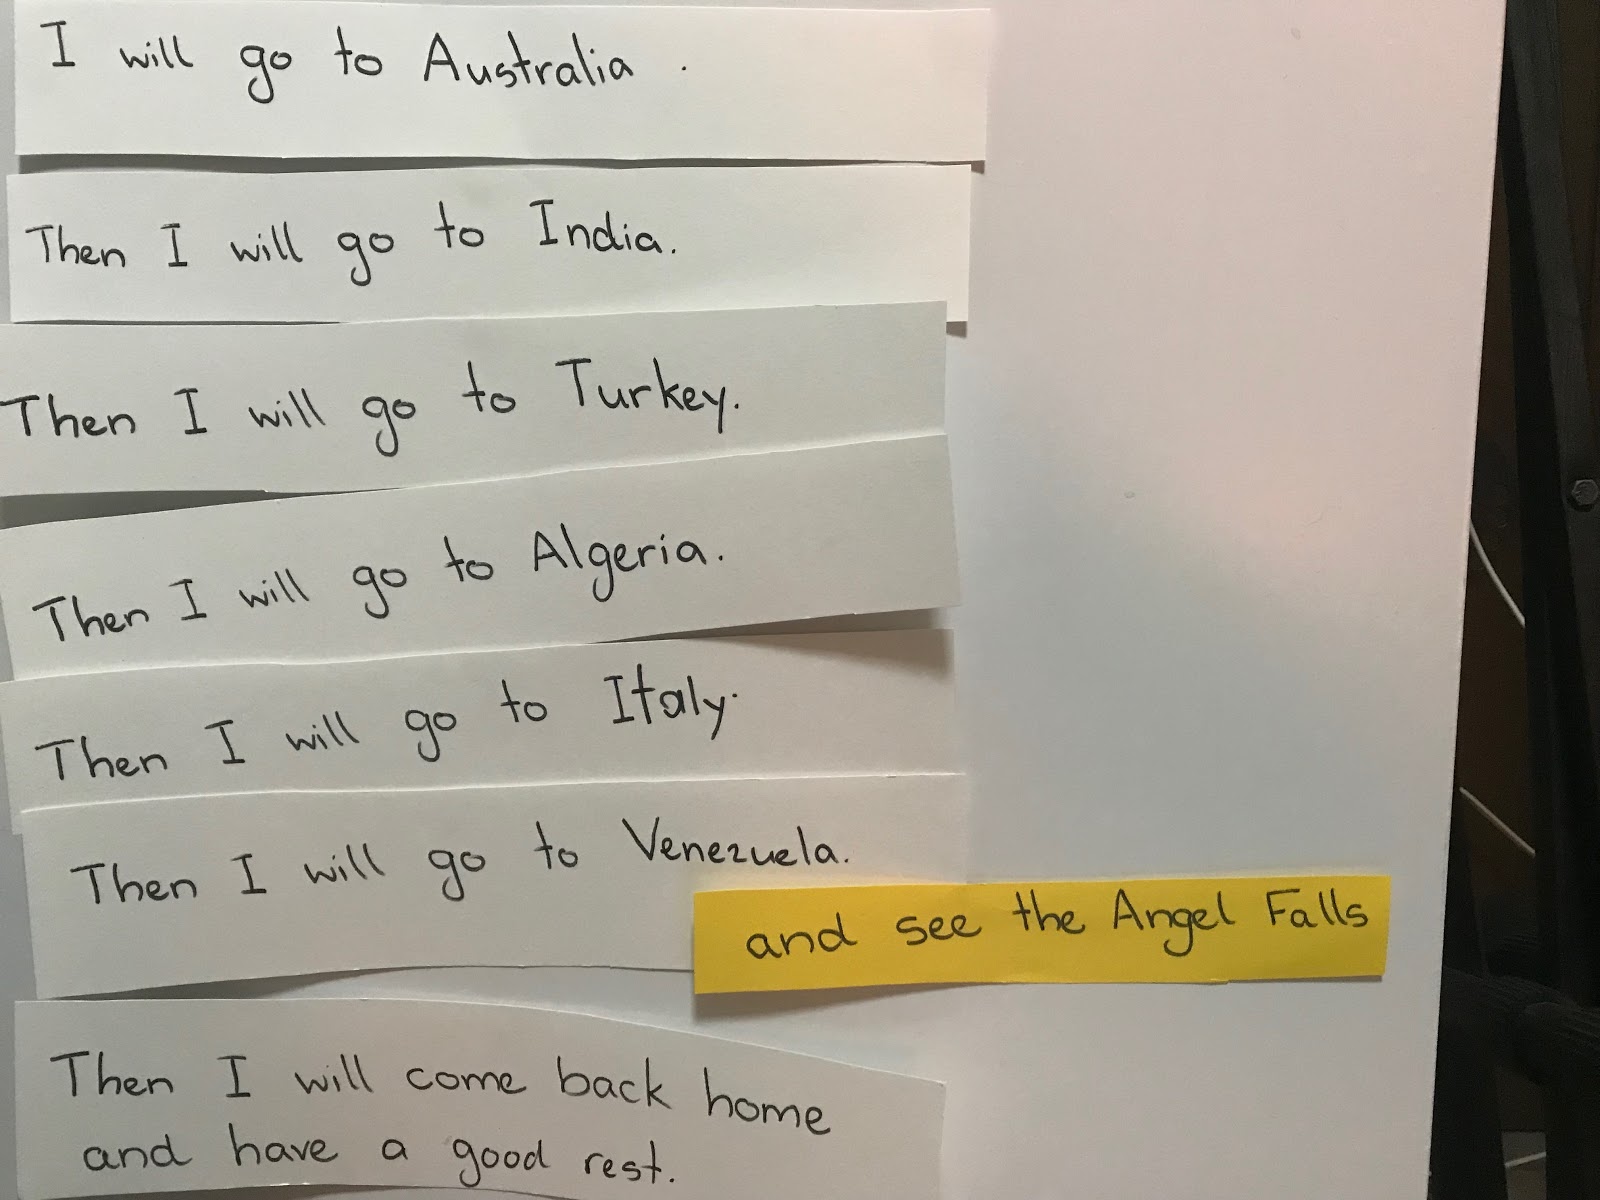 I will go to Australia.
Then I will go to India.
Then I will go to Turkey.
Then I will go to Algeria.
Then I will go to Italy.
Then I will go to Venezuela.
and see the Angel Falls
Then I will come back home
and have a good rest.